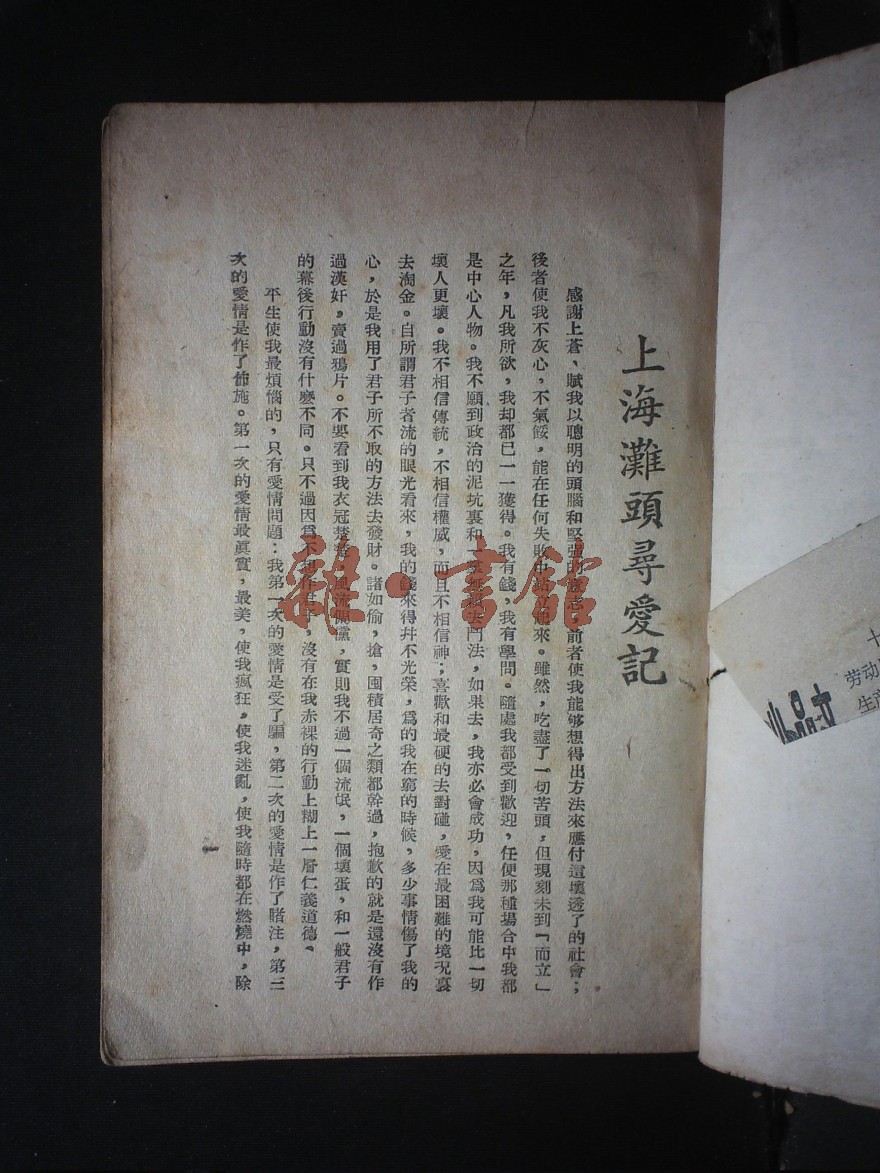 上海灘頭尋愛記
感謝上蒼、賦我以聰明的頭腦和堅強的意志,前者使我能够想得出方法來應付這壞透了的社會;
後者使我不灰心,不氣餒,能在任何失敗中站立起來。雖然,吃盡了一切苦頭,但現刻未到「而立」
之年,凡我所欲,我却都已一一獲得。我有錢,我有學問。隨處我都受到歡迎,任便那種場合中我都
是中心人物。我不願到政治的泥坑裏和一羣無賴去鬥法,如果去,我亦必會成功,因爲我可能比一切
壞人更壞。我不相信傳統,不相信權威,而且不相信神;喜歡和最硬的去對碰,愛在最困難的境況裏
去淘金。自所謂君子者流的眼光看來,我的錢來得幷不光榮,爲的我在窮的時候,多少事情傷了我的
心,於是我用了君子所不取的方法去發財。諸如偷,搶,囤積居奇之類都幹過,抱歉的就是還沒有作
過漢奸,賣過鴉片。不要看到我衣冠楚楚,風流倜儻,實則我不過一個流氓,一個壞蛋,和一般君子
的幕後行動沒有什麽不同。只不過因爲不想作君子,沒有在我赤裸的行動上糊上一層仁義道德。
平生使我最煩惱的,只有愛情問題:我第一次的愛情是受了騙,第二次的愛情是作了賭注,第三
次的愛情是作了佈施。第一次的愛情最眞實,最美,使我瘋狂,使我迷亂,使我隨時都在燃燒中,除
一
雜·書館
十
劳动
生产